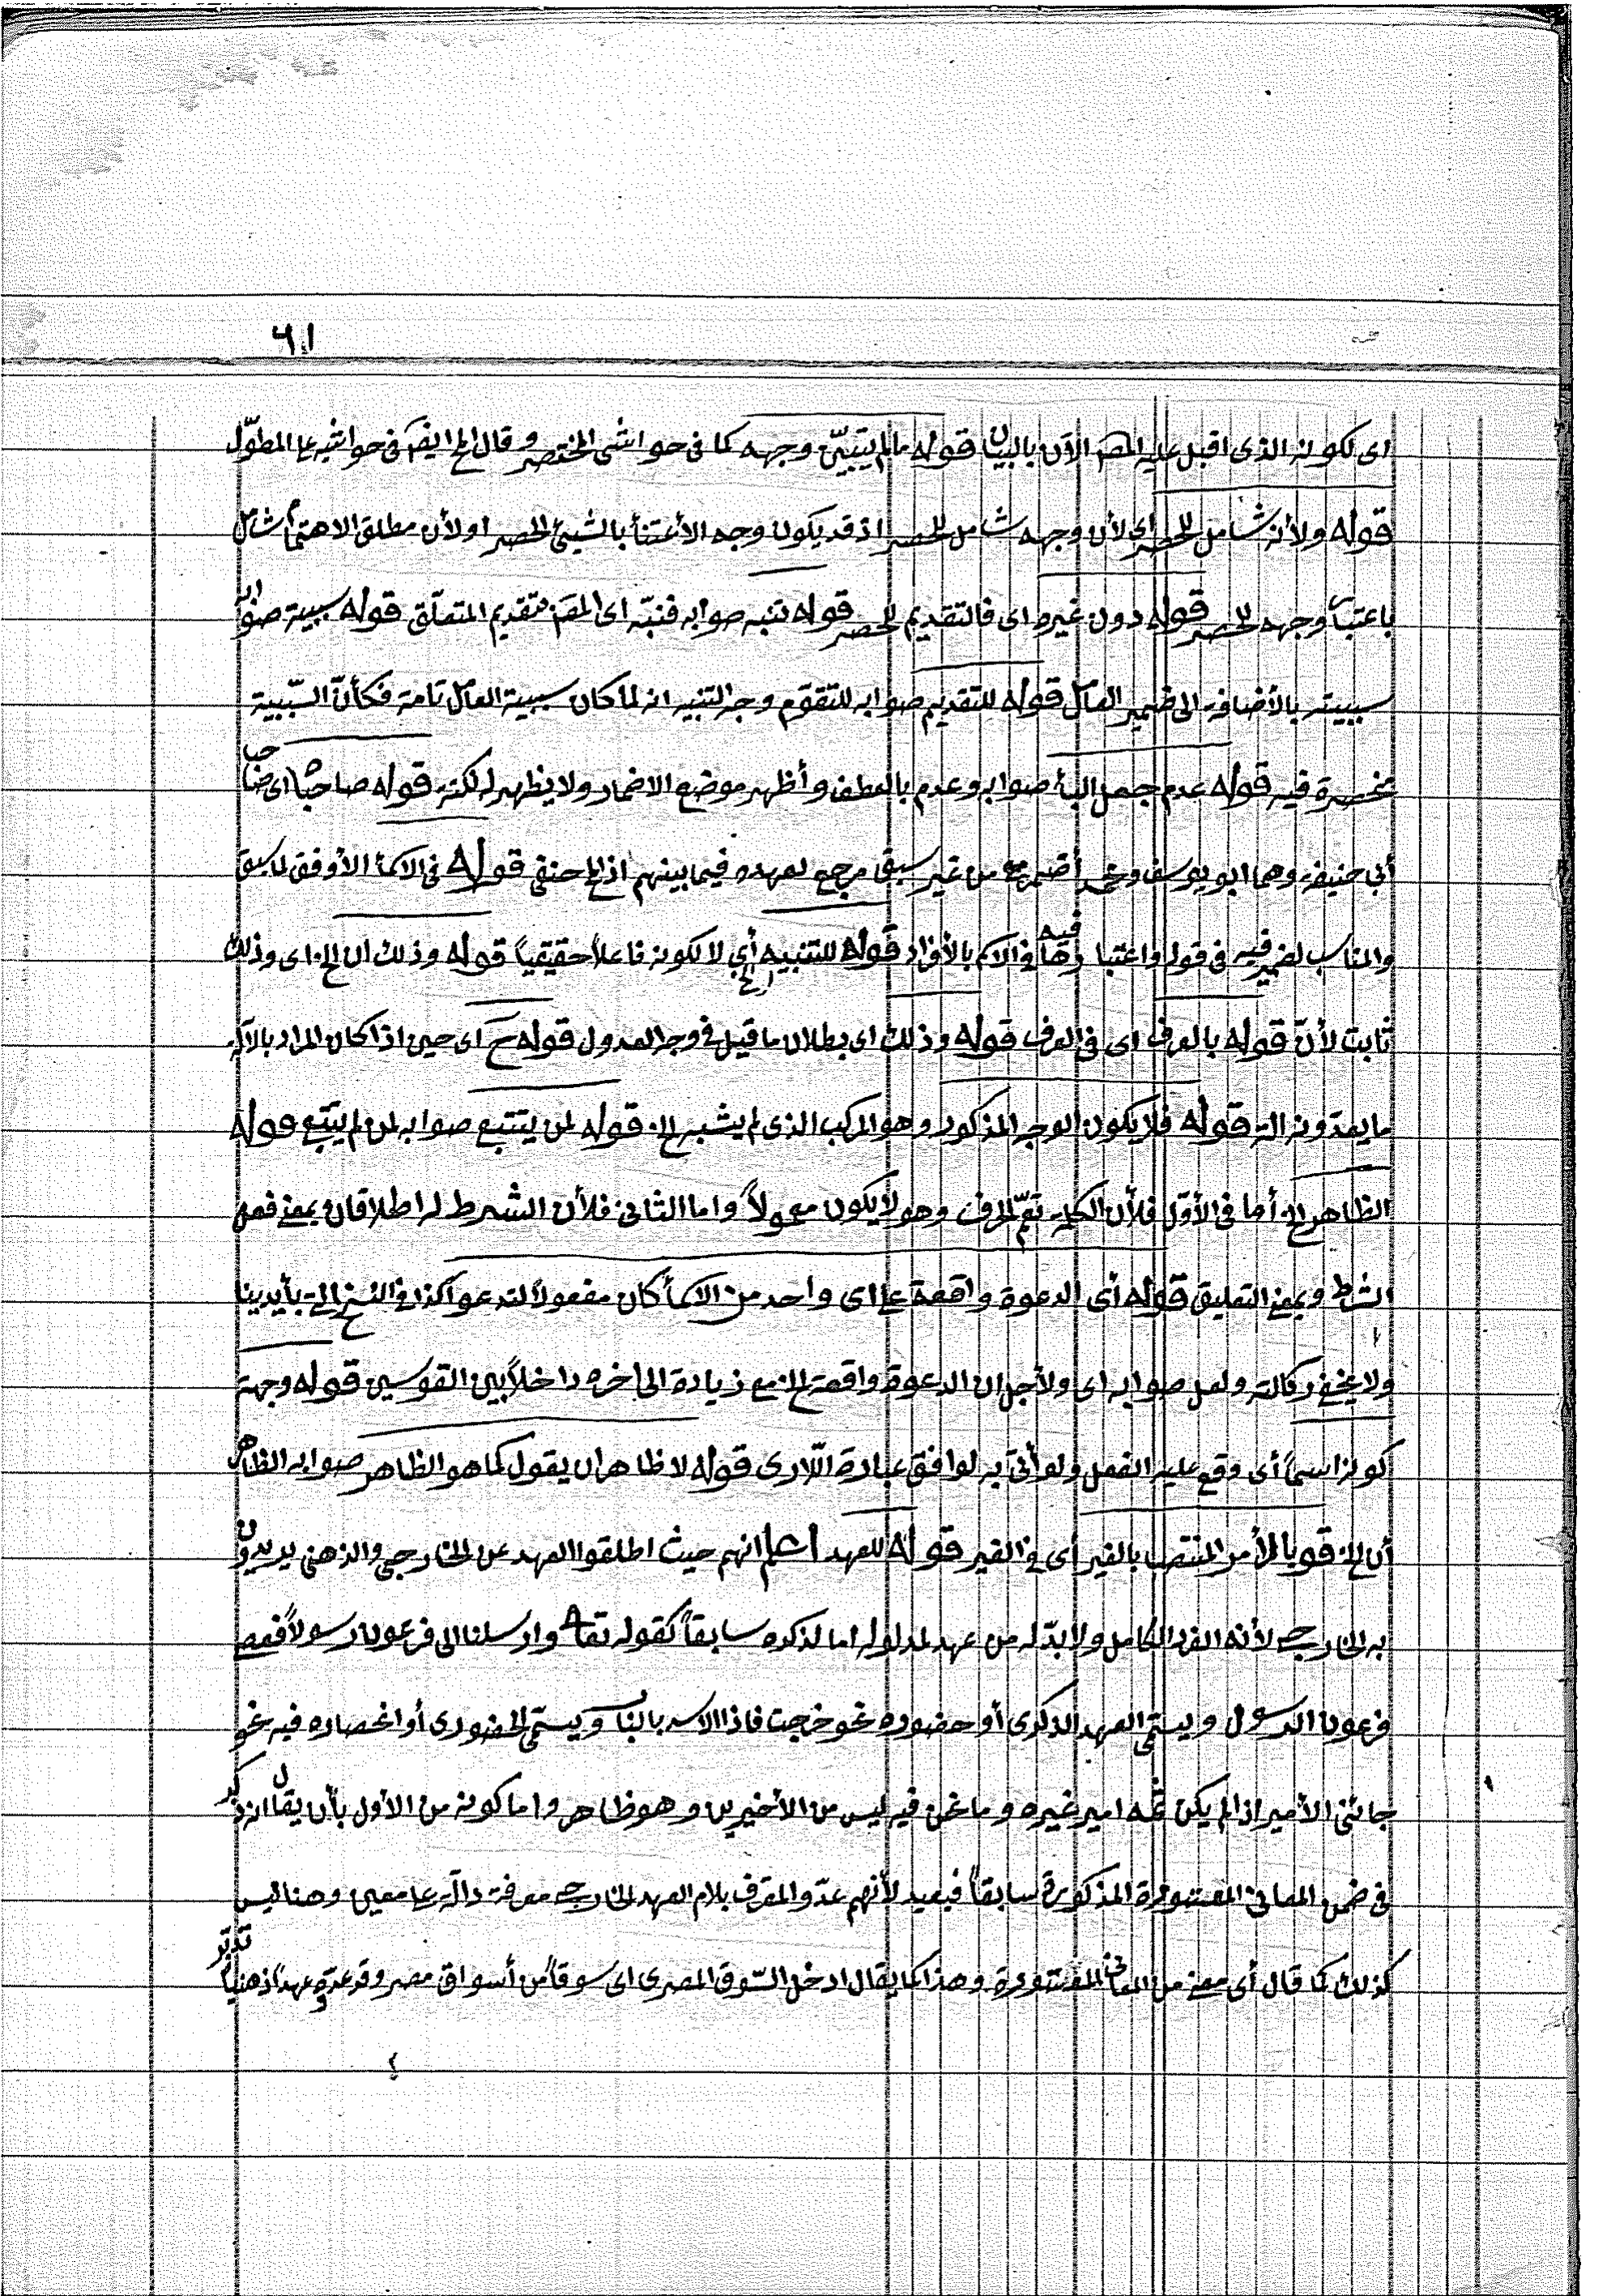 ٦١
اى لكونه الذى اقبل عليه المصر الآن بالبيان قوله مالم يتبيّن وجهه كما فى حواشى المختصر و قال المح ايضًا فى حواشيه عا المطوّل
قوله ولأنه شامل للحصر اى لأن وجهه شامل للحصر اذ قد يكون وجه الأعتنأ بالشيئ الحصر اولأن مطلق الاهتمام شامل
باعتبار وجهه للحصر قوله دون غيره اى فالتقديم للحصر قوله تنبه صوابه فنبّه اى المصر بتقديم المتعلّق قوله سببية صوابه
سببيته بالأضافة الى ضمير العامل قوله للتقديم صوابه للتقوّم وجه التنبيه انه لما كان سببية العامل تامة فكأنّ السّببية
منحصرة فيه قوله عدم جعل البأ صوابه وعدم بالعطف وأظهر موضع الاضمار ولا يظهر له نكتة قوله صاحباه اى صاحبا
أبى حنيفة وهما ابو يوسف ومحمد أضمر مع من غير سبق مرجع لعهده فيما بينهم اذ المح حنفى قوله فى الاكمأ الأوفق لما سبق
والمناسب لضمير فيه فى قوله واعتبارها فيه فى الاكم بالأفراد قوله للتنبيه الخ أي لا لكونه فاعلاً حقيقياً قوله وذلك ان الخ اى وذلك
ثابت لأنّ قوله بالعرف اى فى العرف قوله وذلك اى بطلان ما قيل فى وجه العدول قوله ح اى حين اذا كان المراد بالآلة
ما يعدّونه الة قوله فلا يكون الوجه المذكور وهو المركب الذى لم يشبه الخ قوله لمن يتتبع صوابه لمن لم يتتبع قوله
الظاهر الخ أما فى الأوّل فلأن الكلمة تعمّ الحرف وهو لا يكون معمولاً واما الثانى فلأن الشرط له اطلاقان بمعنى فعل
الشرط وبمعنى التعليق قوله أى الدعوة واقعة على اى واحد من الاكمأ كان مفعولاً لتدعوا كذا فى النسخ التى بأيدينا
ولا يخفى ركاكته ولعل صوابه اى ولأجل ان الدعوة واقعة الخ مع زيادة الى اخره داخلاً بين القوسين قوله وجهة
كونها اسماً أى وقع عليه الفعل ولو أتى به لوافق عبارة اللّارى قوله لا ظاهر ان يقول كما هو الظاهر صوابه الظاهر
أن الخ قو بالأمر المنتصب بالغير أى فى الغير قوله للعهد اعلم انهم حيث اطلقوا العهد عن الخارجى والذهنى يريدون
به الخارجى لأنه الفرد الكامل ولا بدّ له من عهد لمدلوله اما لذكره سابقاً كقوله تعالى وارسلنا الى فرعون رسولاً فعصى
فرعون الرسول ويسمّى العهد الذكرى أو حضوره نحو خرجت فاذا الاسد بالباب ويسمّى الحضورى أو انحصاره فيه نحو
جائنى الأمير اذا لم يكن ثمه امير غيره وما نحن فيه ليس من الأخيرين وهو ظاهر واما كونه من الأول بأن يقال انه ذكر
فى ضمن المعانى المعتورة المذكورة سابقاً فبعيد لأنهم عدّوا المعرّف بلام العهد الخارجى معرفة دالّة عا معين وهنا ليس
كذلك كما قال أى معنى من المعانى المعتورة وهذا كما يقال ادخل السّوق المصرى اى سوقاً من أسواق مصر وقد عدّوه عهداً ذهنياً تدبّر